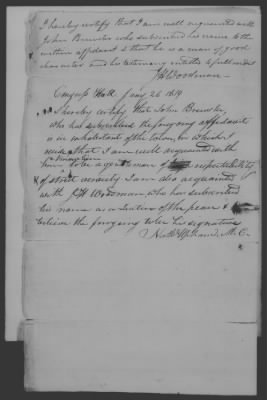 I hereby certify that I am well acquainted with
John Brewster who subscribed his name to the
within affidavit & that he is a man of good
character and his testimony entitled to full credit
Woodman
Congress Hall Jany 26 1819
I hereby certify that John Brewster,
who has subscribed the foregoing affidavit
is an inhabitant of the town, in which I
reside, that I am well acquainted with
him & to be a gentleman of respectability
& of strict veracity I am also acquainted
with J H Woodman, who has subscribed
his name as a Justice of the peace &
believe the foregoing to be his signature
M. C.